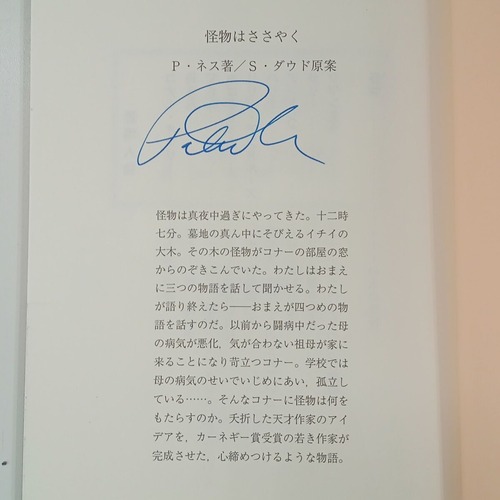 怪物はささやく
P・ネス著／S・ダウド原案
怪物は真夜中過ぎにやってきた。十二時
七分。墓地の真ん中にそびえるイチイの
大木。その木の怪物がコナーの部屋の窓
からのぞきこんでいた。わたしはおまえ
に三つの物語を話して聞かせる。わたし
が語り終えたら――おまえが四つめの物
語を話すのだ。以前から闘病中だった母
の病気が悪化，気が合わない祖母が家に
来ることになり苛立つコナー。学校では
母の病気のせいでいじめにあい，孤立し
ている……。そんなコナーに怪物は何を
もたらすのか。夭折した天才作家のアイ
デアを，カーネギー賞受賞の若き作家が
完成させた，心締めつけるような物語。